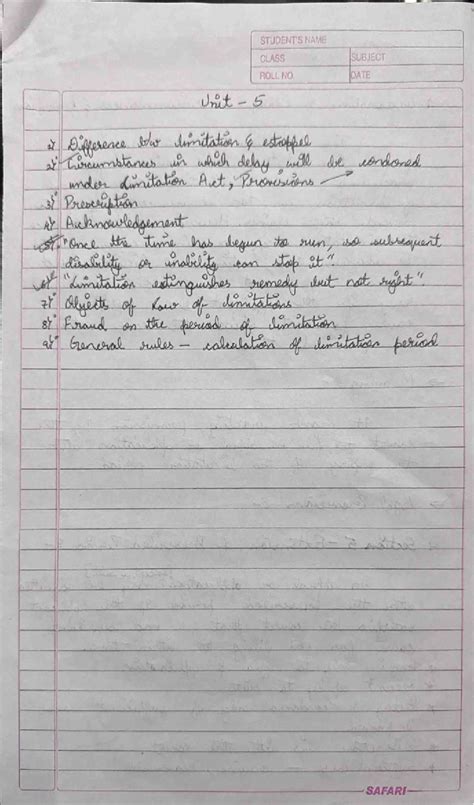 STUDENT'S NAME
CLASS SUBJECT
ROLL NO. DATE
Unit - 5
1) Difference b/w limitation & estoppel
2) Circumstances in which delay will be condoned
under Limitation Act, Provisions
3) Prescription
4) Acknowledgement
5) "Once the time has begun to run, no subsequent
disability or inability can stop it".
6) "Limitation extinguishes remedy but not right".
7) Objects of Law of limitations
8) Fraud on the period of limitation
9) General rules - calculation of limitation period
SAFARI